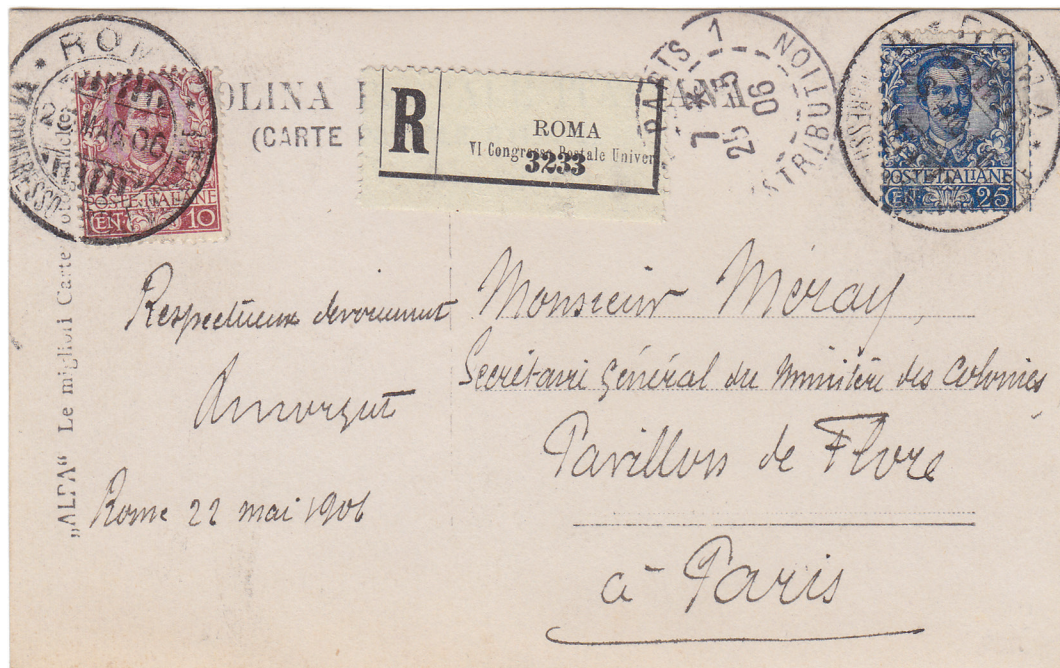 ROMA
MAG 06
POSTE·ITALIANE
CEN 10
OLINA P
(CARTE P
R
ROMA
VI Congresso Postale Univer
3233
PARIS 1
7
25
06
DISTRIBUTION
ROMA
POSTE·ITALIANE
CEN 25
„ALFA“ Le migliori Carte
Respectueux dévouement
Rome 22 mai 1906
Monsieur Méray,
Secrétaire Général du Ministère des Colonies
Pavillon de Flore
à Paris